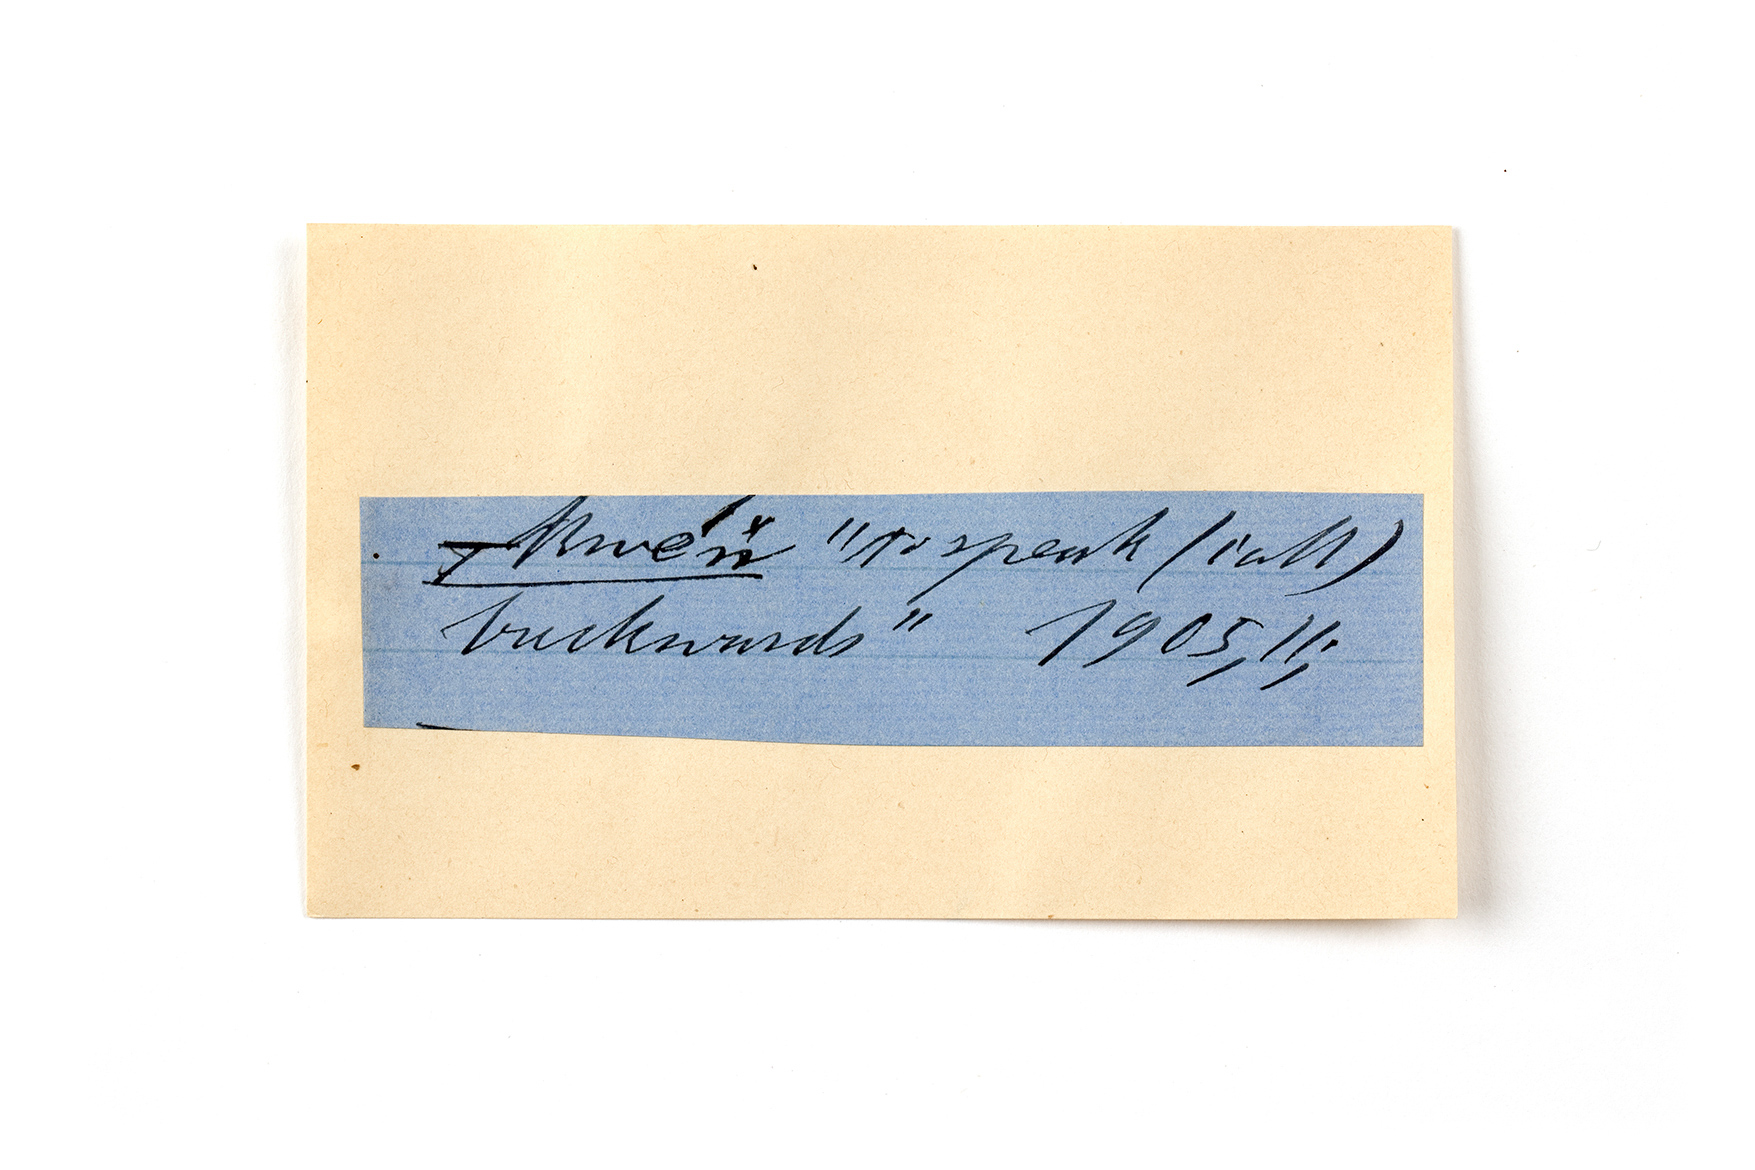 "to speak (talk)
backwards" 1905, 11;